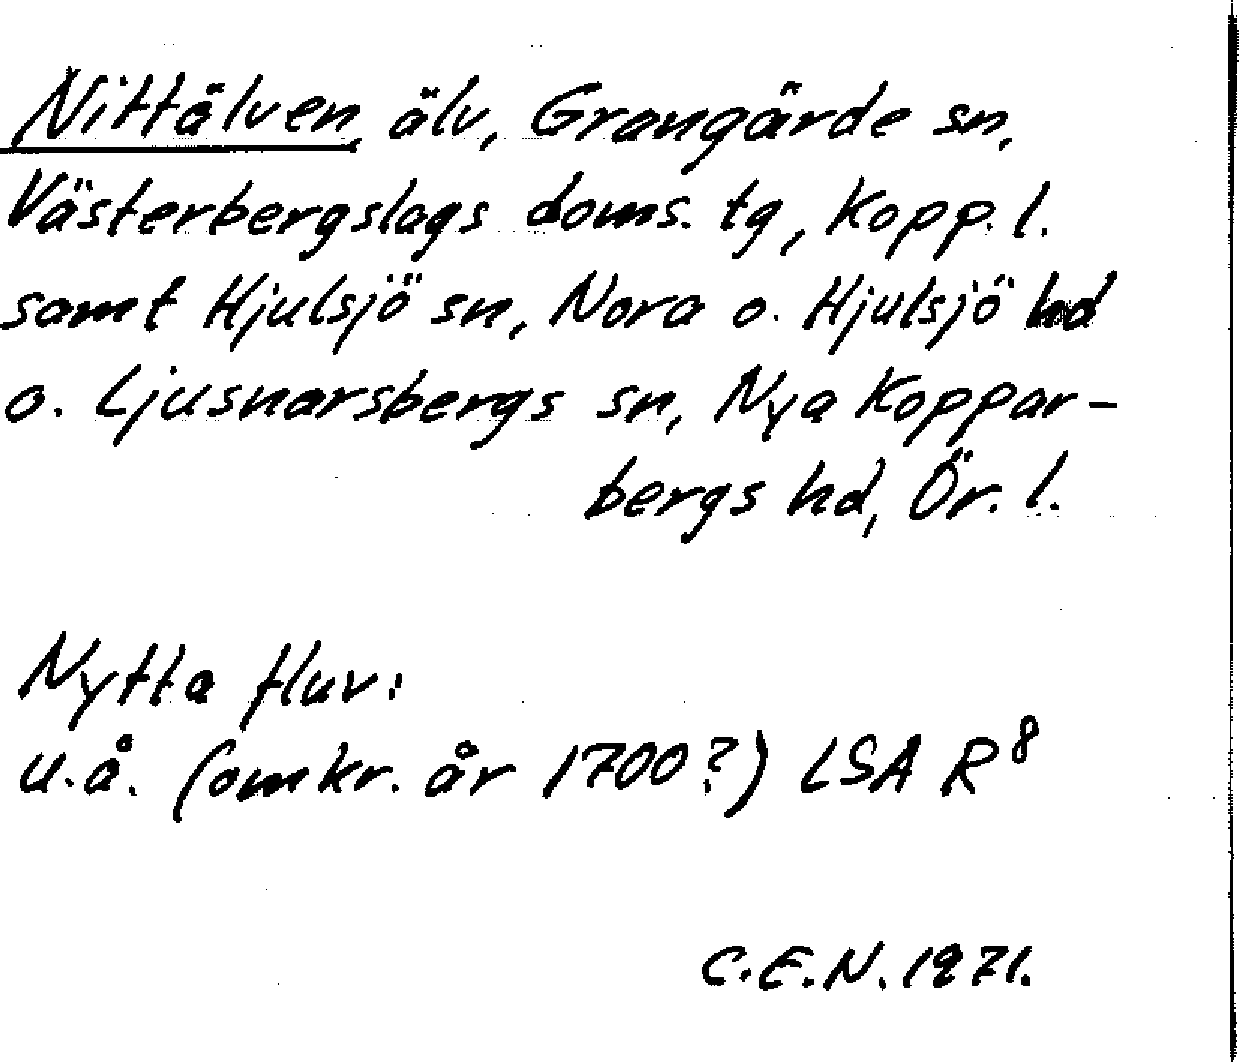 Nittälven, älv, Grangärde sn,
Västerbergslags doms. tg, Kopp. l.
samt Hjulsjö sn, Nora o. Hjulsjö hd
o. Ljusnarsbergs sn, Nya Koppar-
bergs hd, Ör. l.
Nytta fluv:
u.å. (omkr. år 1700?) LSA R8
C.E.N. 1971.